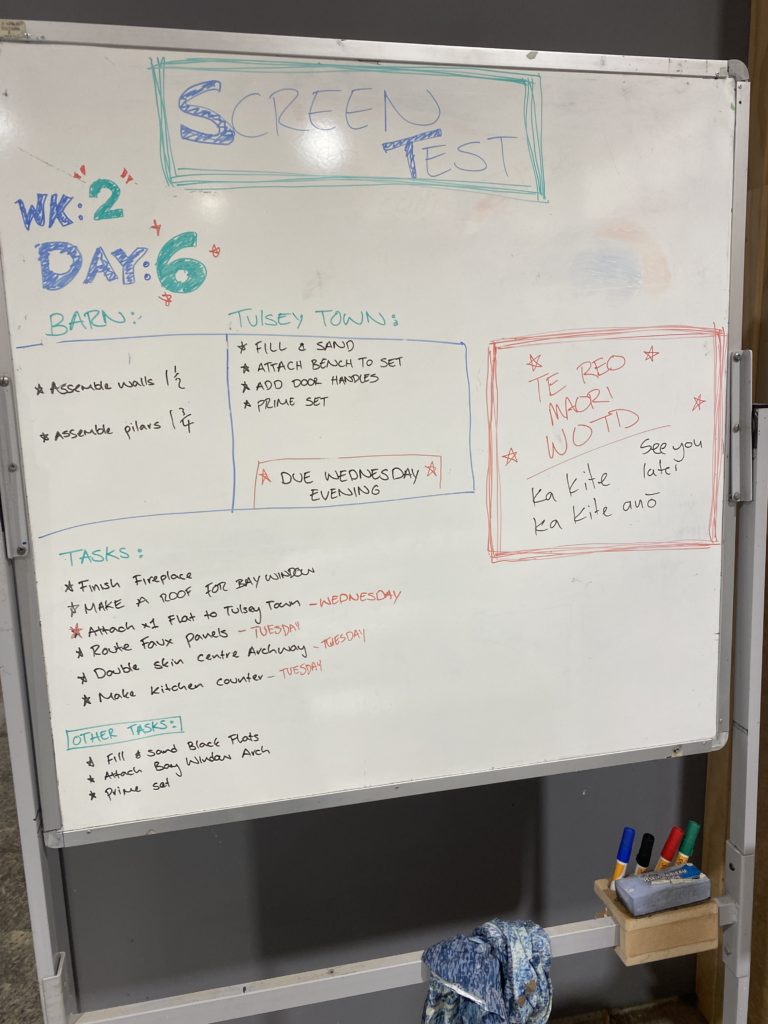 SCREEN
TEST
WK: 2
DAY: 6
BARN:
★ Assemble walls 1 1/2
★ Assemble pilars 1 3/4
TULSEY TOWN:
★ FILL & SAND
★ ATTACH BENCH TO SET
★ ADD DOOR HANDLES
★ PRIME SET
★ DUE WEDNESDAY ★
EVENING
TE REO
MAORI
WOTD
See you
later
Ka Kite
Ka Kite anō
TASKS:
★ Finish Fireplace
★ MAKE A ROOF FOR BAY WINDOW
★ Attach x1 Flat to Tulsey Town - WEDNESDAY
★ Route Faux panels - TUESDAY
★ Double skin centre Archway - TUESDAY
★ Make Kitchen counter - TUESDAY
OTHER TASKS:
★ Fill & Sand Black Flats
★ Attach Bay Window Arch
★ Prime set